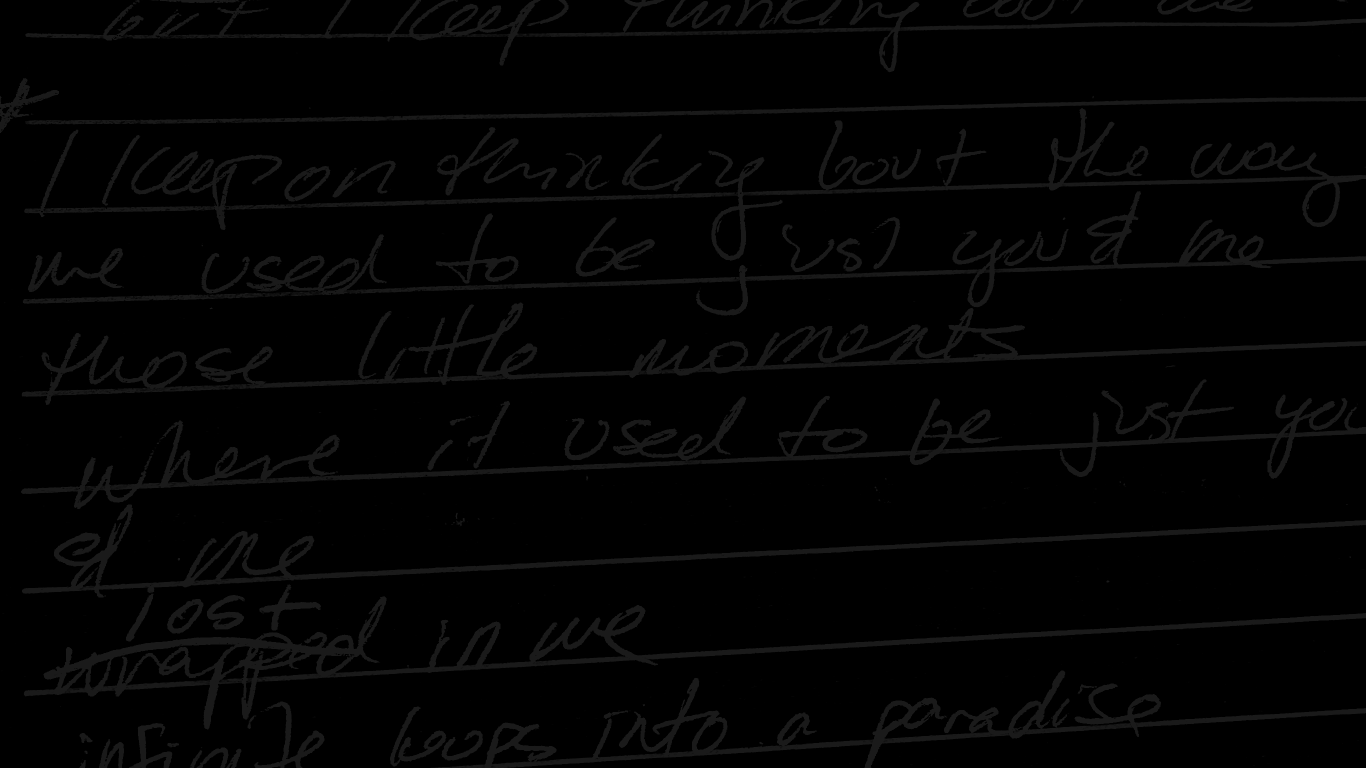 but I keep thinking bout the
I keep on thinking bout the way
we used to be just you & me
those little moments
where it used to be just you
& me
lost
wrapped in we
infinite loops into a paradise